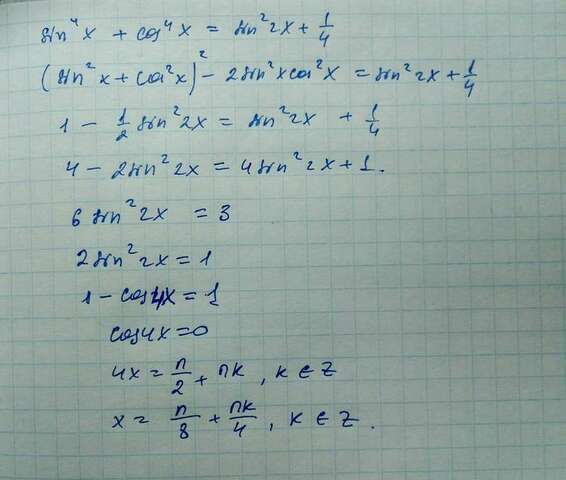 sin⁴x + cos⁴x = sin²2x + 1/4
(sin²x + cos²x)² - 2sin²xcos²x = sin²2x + 1/4
1 - 1/2 sin²2x = sin²2x + 1/4
4 - 2sin²2x = 4sin²2x + 1.
6 sin²2x = 3
2sin²2x = 1
1 - cos4x = 1
cos4x = 0
4x = π/2 + πk, k ∈ Z
x = π/8 + πk/4, k ∈ Z.